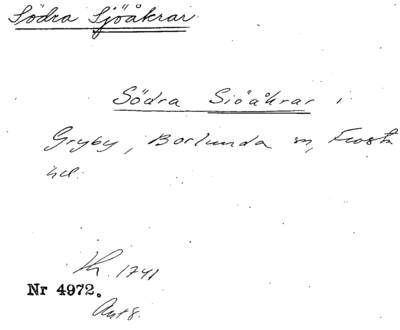 Södra Sjöåkrar
Södra Sjöåkrar i
Gryby, Borlunda sn, Frosta
hd.
Kh. 1741
Nr 4972.
Avt 8.